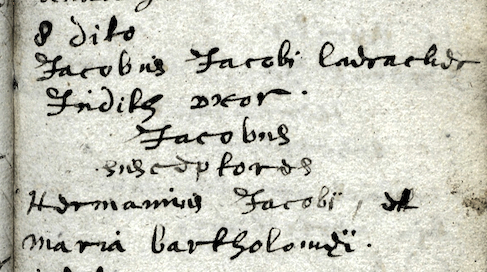 8 dito
Jacobus Jacobi
Judith uxor.
Jacobus
susceptores
Hermanius Jacobi, et
Maria bartholomei.